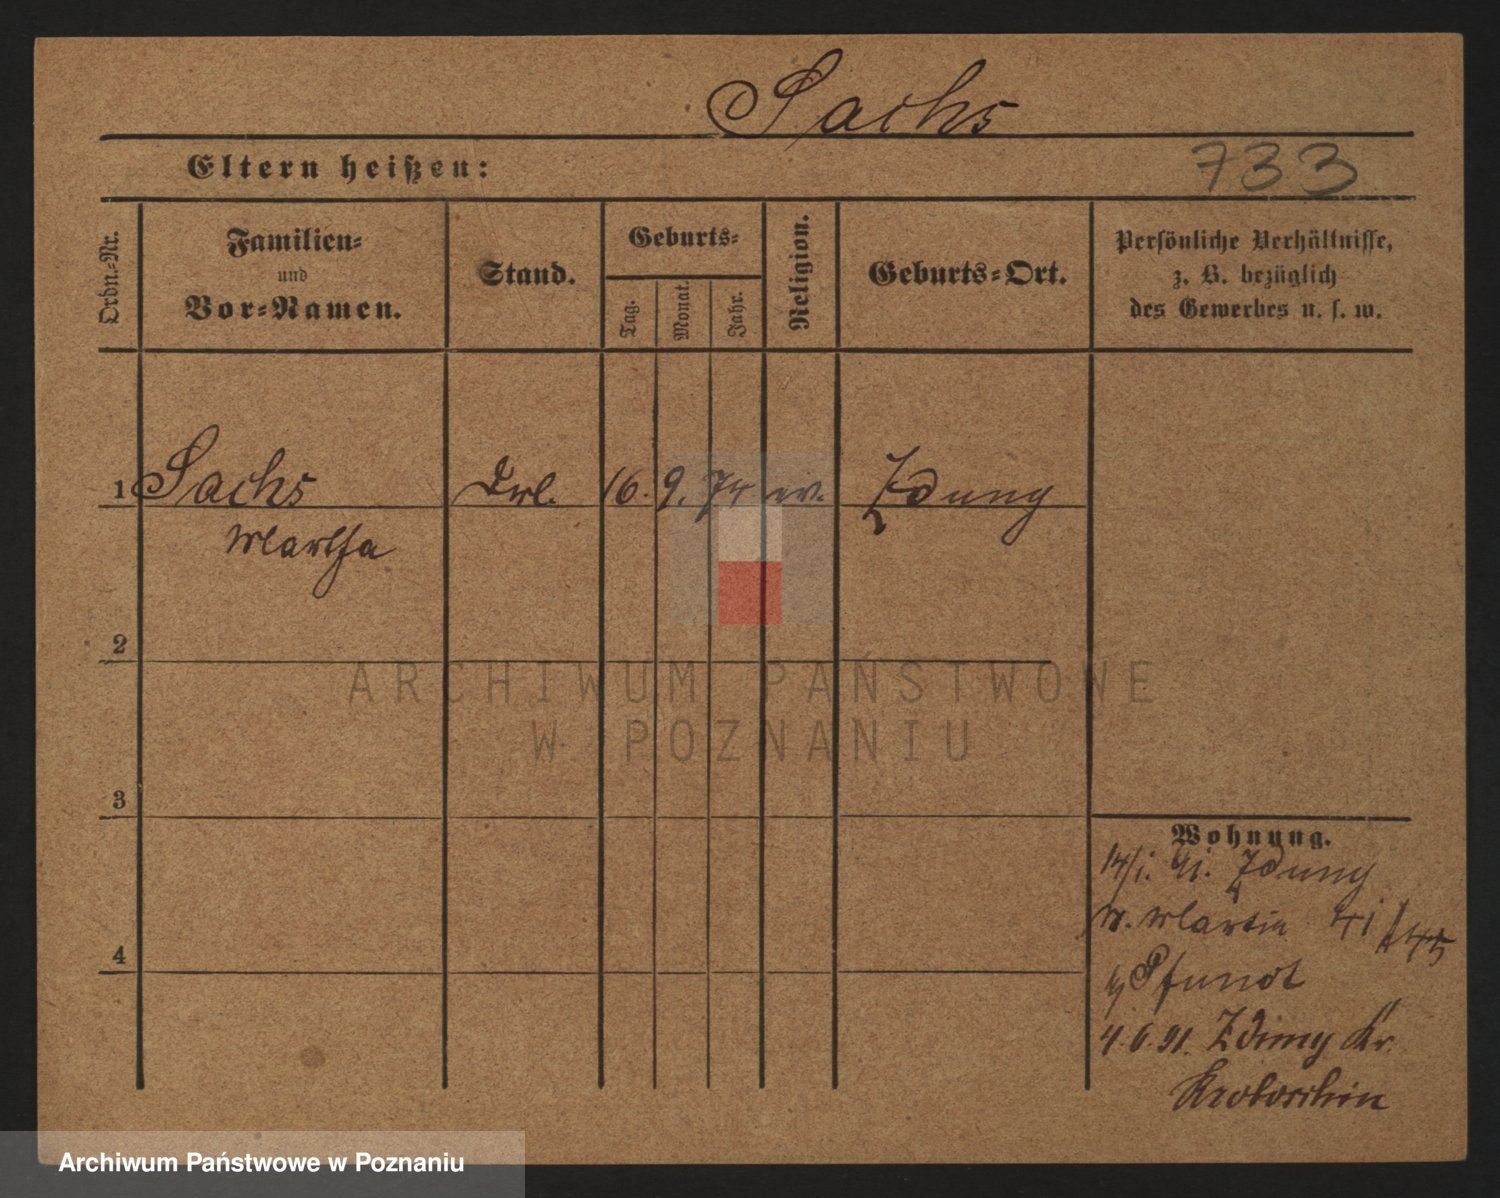 Sachs
Eltern heißen:
733
Ordn.-Nr.
Familien-
und
Vor-Namen.
Stand.
Geburts-
Tag.
Monat.
Jahr.
Religion.
Geburts-Ort.
Persönliche Verhältnisse,
z. B. bezüglich
des Gewerbes u. s. w.
1 Sachs 16. 9. 74 ev. Zduny
Martha
2
3
4
Wohnung.
14/1. 91. Zduny
Martin 41
Pfundt
4.6.91. Zduny Kr.
Krotoschin
ARCHIWUM PAŃSTWOWE
W POZNANIU
Archiwum Państwowe w Poznaniu